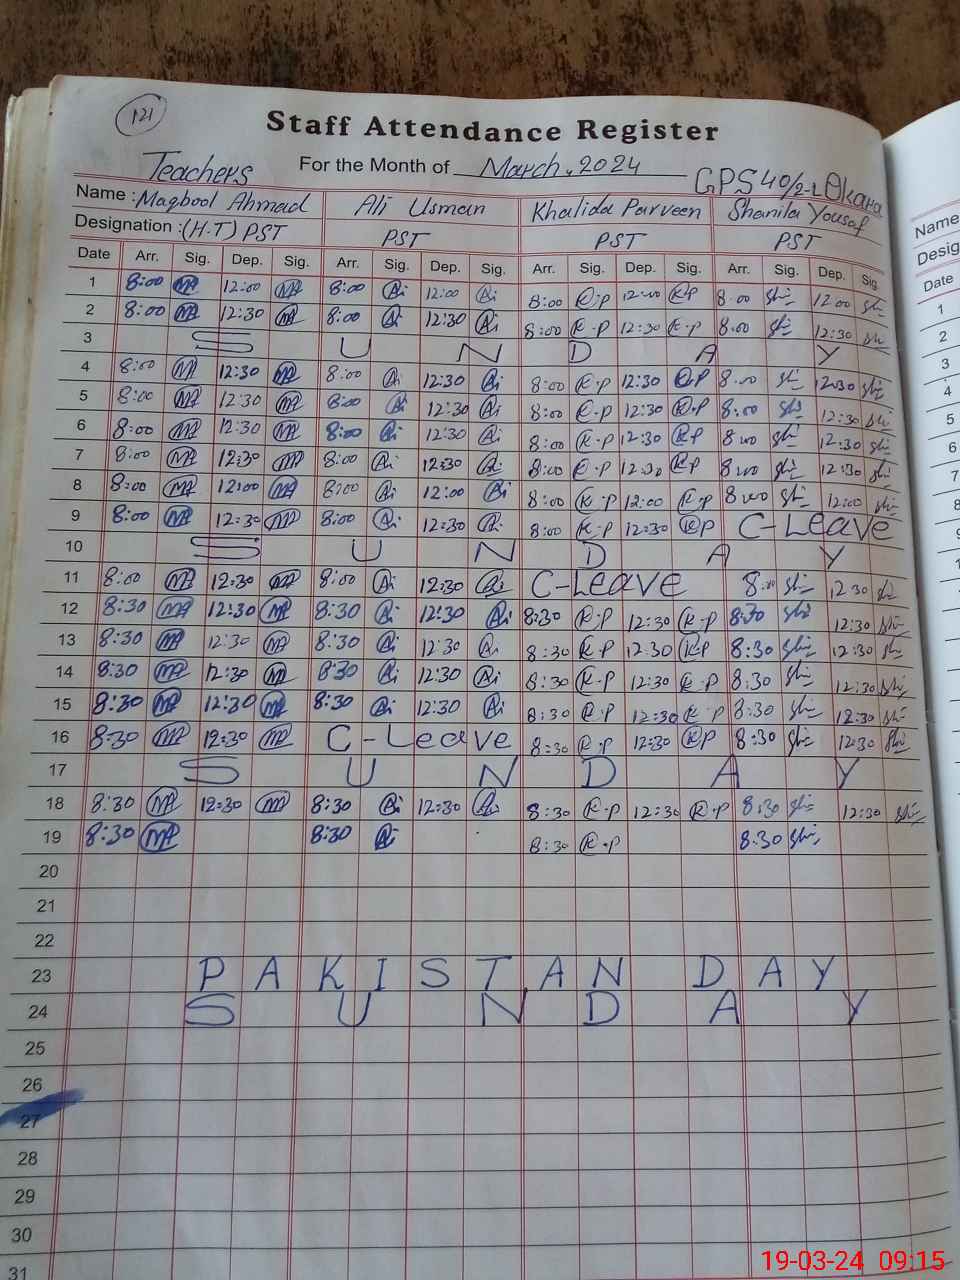 121
Staff Attendance Register
Teachers For the Month of March, 2024 GPS 40/2-L Okara
Name : Maqbool Ahmad Ali Usman Khalida Parveen Shanila Yousaf Name
Designation : (H.T) PST PST PST PST Desig
Date Arr. Sig. Dep. Sig. Arr. Sig. Dep. Sig. Arr. Sig. Dep. Sig. Arr. Sig. Dep. Sig. Date
1 8:00 MA 12:00 MA 8:00 Ali 12:00 Ali 8:00 K.P 12:00 K.P 8:00 Shi 12:00 Shi 1
2 8:00 MA 12:30 MA 8:00 Ali 12:30 Ali 8:00 K.P 12:30 K.P 8:00 Shi 12:30 Shi 2
3 S U N D A Y 3
4 8:00 MA 12:30 MA 8:00 Ali 12:30 Ali 8:00 K.P 12:30 K.P 8:00 Shi 12:30 Shi 4
5 8:00 MA 12:30 MA 8:00 Ali 12:30 Ali 8:00 K.P 12:30 K.P 8:00 Shi 12:30 Shi 5
6 8:00 MA 12:30 MA 8:00 Ali 12:30 Ali 8:00 K.P 12:30 K.P 8:00 Shi 12:30 Shi 6
7 8:00 MA 12:30 MA 8:00 Ali 12:30 Ali 8:00 K.P 12:30 K.P 8:00 Shi 12:30 Shi 7
8 8:00 MA 12:00 MA 8:00 Ali 12:00 Ali 8:00 K.P 12:00 K.P 8:00 Shi 12:00 Shi 8
9 8:00 MA 12:30 MA 8:00 Ali 12:30 Ali 8:00 K.P 12:30 K.P C-Leave
10 S U N D A Y
11 8:00 MA 12:30 MA 8:00 Ali 12:30 Ali C-Leave 8:00 Shi 12:30 Shi
12 8:30 MA 12:30 MA 8:30 Ali 12:30 Ali 8:30 K.P 12:30 K.P 8:30 Shi 12:30 Shi
13 8:30 MA 12:30 MA 8:30 Ali 12:30 Ali 8:30 K.P 12:30 K.P 8:30 Shi 12:30 Shi
14 8:30 MA 12:30 MA 8:30 Ali 12:30 Ali 8:30 K.P 12:30 K.P 8:30 Shi 12:30 Shi
15 8:30 MA 12:30 MA 8:30 Ali 12:30 Ali 8:30 K.P 12:30 K.P 8:30 Shi 12:30 Shi
16 8:30 MA 12:30 MA C-Leave 8:30 K.P 12:30 K.P 8:30 Shi 12:30 Shi
17 S U N D A Y
18 8:30 MA 12:30 MA 8:30 Ali 12:30 Ali 8:30 K.P 12:30 K.P 8:30 Shi 12:30 Shi
19 8:30 MA 8:30 Ali 8:30 K.P 8:30 Shi
20
21
22
23 P A K I S T A N D A Y
24 S U N D A Y
25
26
27
28
29
30
31
19-03-24 09:15